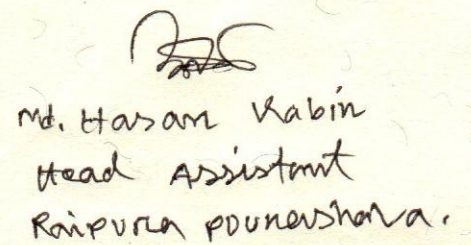 Md. Hasan Kabir
Head Assistant
Raipura pourashava.